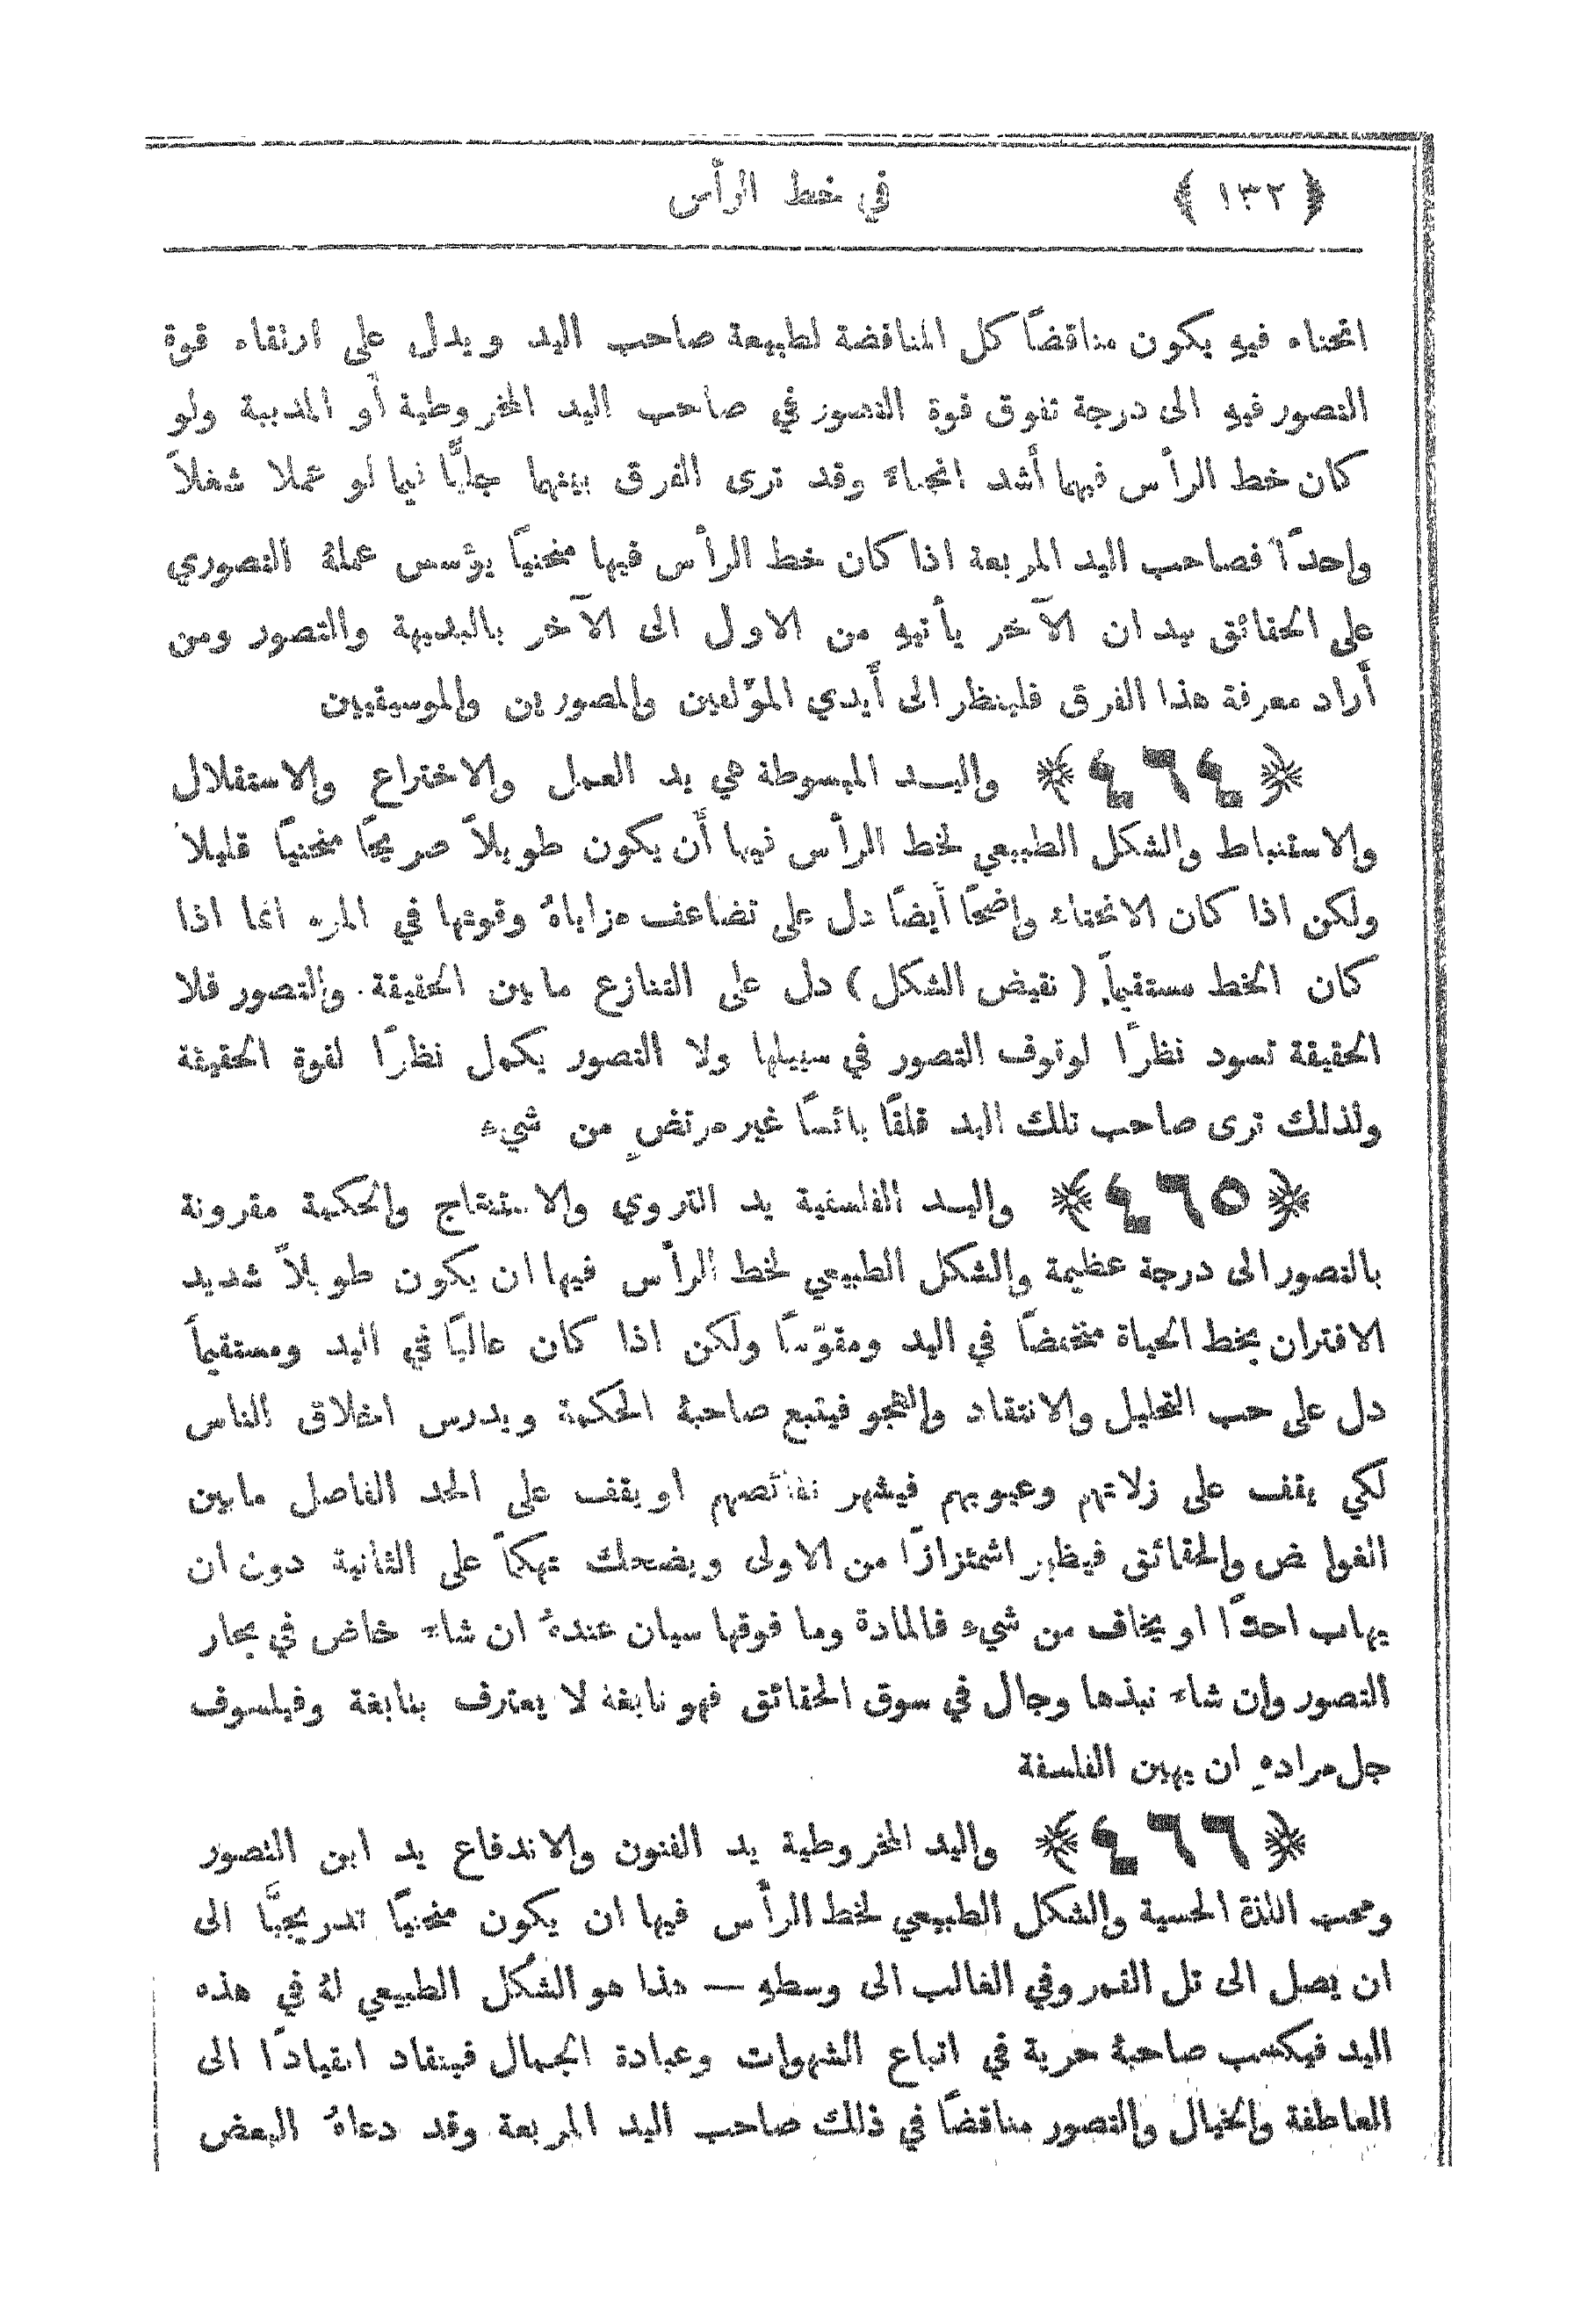 ﴿ ١٣٢ ﴾ في خط الرأس
انحناء فيهِ يكون مناقضًا كل المناقضة لطبيعة صاحب اليد ويدل على ارتقاء قوة
التصور فيهِ الى درجة تفوق قوة التصور في صاحب اليد المخروطية أو المدببة ولو
كان خط الرأس فيهما أشد انحناءً وقد ترى الفرق بينهما جليًّا فيما لو عملا شغلاً
واحدًا فصاحب اليد المربعة اذا كان خط الرأس فيها منحنيًا يؤسس عملهُ التصوري
على الحقائق بيد ان الآخر يأتيهِ من الاول الى الآخر بالبديهة والتصور ومن
أراد معرفة هذا الفرق فلينظر الى أيدي المؤلفين والمصورين والموسيقيين
﴿ ٤٦٤ ﴾ واليد المبسوطة هي يد العمل والاختراع والاستقلال
والاستنباط والشكل الطبيعي لخط الرأس فيها أن يكون طويلاً صريحًا منحنيًا قليلاً
ولكن اذا كان الانحناء واضحًا أيضًا دل على تضاعف مزاياهُ وقوتها في المرء انما اذا
كان الخط مستقيماً ( نقيض الشكل ) دل على التنازع ما بين الحقيقة والتصور فلا
الحقيقة تسود نظرًا لوقوف التصور في سبيلها ولا التصور يكمل نظرًا لقوة الحقيقة
ولذلك ترى صاحب تلك اليد قلقًا بائسًا غير مرتضٍ من شيء
﴿ ٤٦٥ ﴾ واليد الفلسفية يد التروي والاستنتاج والحكمة مقرونة
بالتصور الى درجة عظيمة والشكل الطبيعي لخط الرأس فيها ان يكون طويلاً شديد
الاقتران بخط الحياة منخفضًا في اليد ومقوّسًا ولكن اذا كان عاليًا في اليد ومستقيماً
دل على حب التحليل والانتقاد والهجو فيتبع صاحبهُ الحكمة ويدرس اخلاق الناس
لكي يقف على زلاتهم وعيوبهم فيشهر نقائصهم او يقف على الحد الفاصل ما بين
الغوامض والحقائق فيظهر اشمئزازًا من الاولى ويضحك تهكماً على الثانية دون ان
يهاب احدًا او يخاف من شيء فالمادة وما فوقها سيان عندهُ ان شاء خاض في بحار
التصور وان شاء نبذها وجال في سوق الحقائق فهو نابغة لا يعترف بنابغة وفيلسوف
جل مرادهِ ان يهين الفلسفة
﴿ ٤٦٦ ﴾ واليد المخروطية يد الفنون والاندفاع يد ابن التصور
ومحب اللذة الحسية والشكل الطبيعي لخط الرأس فيها ان يكون منحنيًا تدريجيًّا الى
ان يصل الى تل القمر وفي الغالب الى وسطهِ — هذا هو الشكل الطبيعي لهُ في هذه
اليد فيكسب صاحبهُ حرية في اتباع الشهوات وعبادة الجمال فينقاد انقيادًا الى
العاطفة والخيال والتصور مناقضًا في ذلك صاحب اليد المربعة وقد دعاهُ البعض